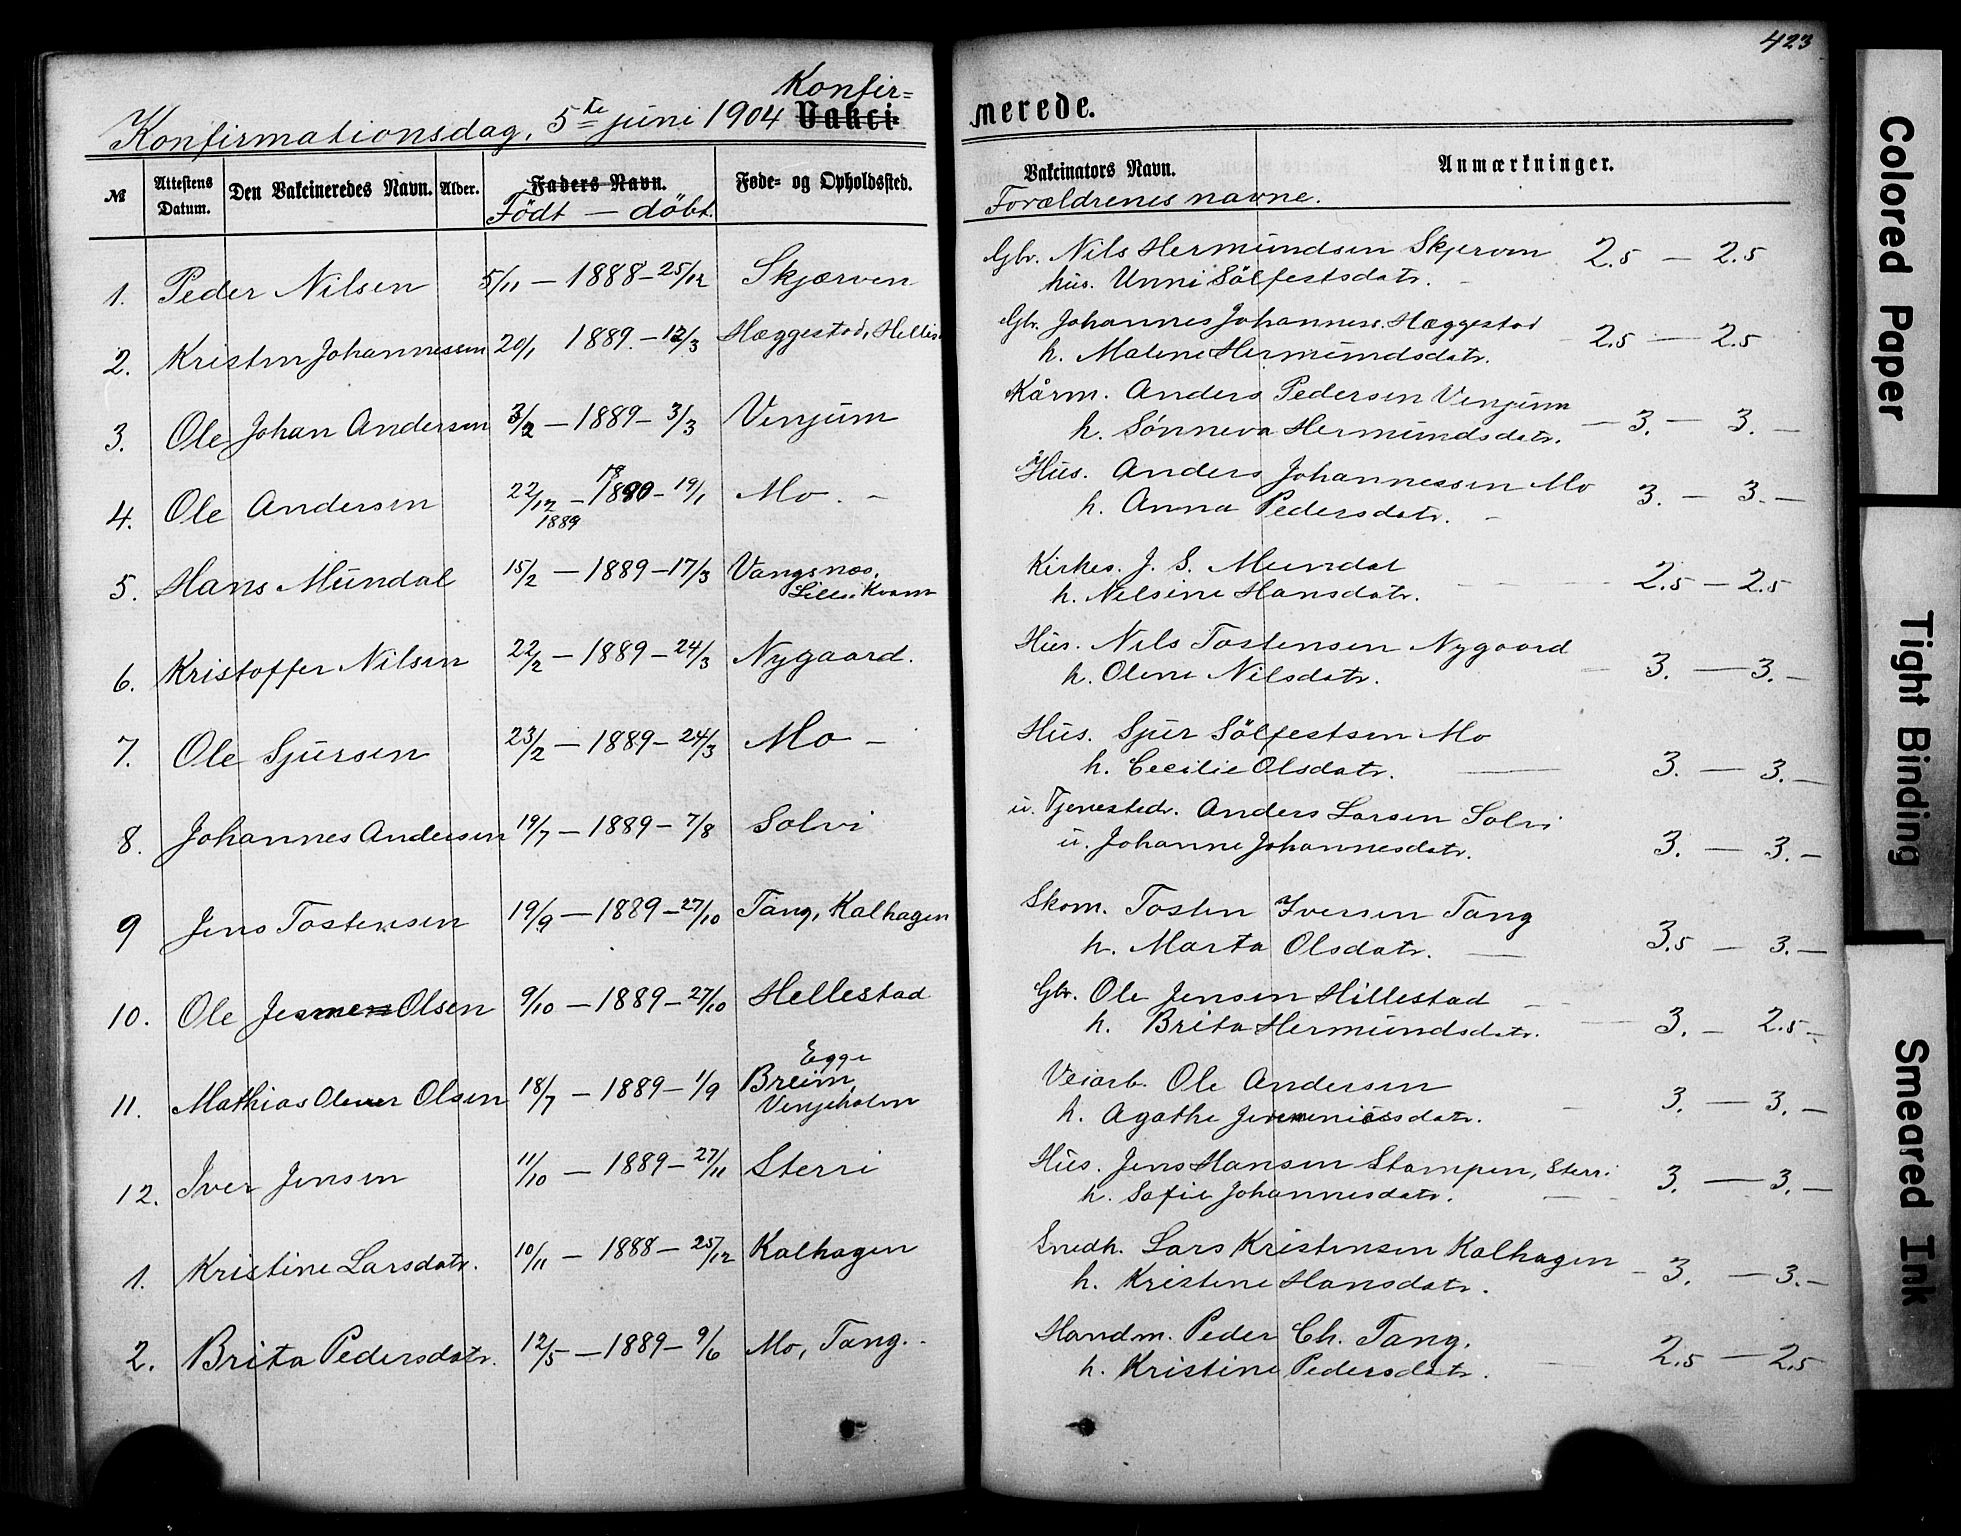 423
Konfir=
Konfirmationsdag, 5te juni 1904 Vakci- merede.
№ Attestens Datum. Den Vakcineredes Navn. Alder. Faders Navn. Føde- og Opholdssted. Vakcinators Navn. Anmærkninger.
Födt — döbt. Forældrenes navne.
1. Peder Nilsen 5/11 — 1888 — 25/12 Skjærven Gbr. Nils Hermundsen Skjerven 2.5 — 2.5
hus. Unni Sölfestsdatr.
2. Kristen Johannessen 20/1 1889 — 12/3 Hæggestad, Gbr. Johannes Johanness. Hæggestad 2.5 — 2.5
h. Malene Hermundsdatr.
3. Ole Johan Andersen 3/2 — 1889 — 3/3 Venjum Kårm. Anders Pedersen Venjum 3. — 3. —
h. Sønneva Hermundsdatr.
4. Ole Andersen 22/12 — 1890 — 19/1 Mo. — Hus. Anders Johannessen Mo 3. — 3. —
1889 h. Anna Pedersdatr.
5. Hans Mundal 15/2 — 1889 — 17/3 Vangsnes, Kirkes. J. S. Mundal 2.5 — 2.5
Kvam h. Nilsine Hansdatr.
6. Kristoffer Nilsen 22/2 — 1889 — 24/3 Nygaard. Hus. Nils Tostensen Nygaard 3. — 3. —
h. Olene Nilsdatr.
7. Ole Sjursen 23/2 — 1889 — 24/3 Mo — Hus. Sjur Sölfestsen Mo 3. — 3. —
h. Cecilie Olsdatr.
8. Johannes Andersen 19/7 — 1889 — 7/8 Solvi u. Tjenestedr. Anders Larsen Solvi 3. — 3. —
u. Johanne Johannesdatr.
9 Jens Tostensen 19/9 — 1889 — 27/10 Tang, Kalhagen Skom. Tosten Iversen Tang 3.5 — 3. —
h. Marta Olsdatr.
10. Ole Olsen 9/10 — 1889 — 27/10 Hellestad Gbr. Ole Jensen Hillestad 3. — 2.5 —
h. Brita Hermundsdatr.
Egge
11. Mathias Oliver Olsen 18/7 — 1889 — 1/9 Breim, Veiarb. Ole Andersen 3. — 3. —
Venjeholm h. Agathe
12. Iver Jensen 11/10 — 1889 — 27/11 Sterri Hus. Jens Hansen Stampen, Sterri 3. — 3. —
h. Sofie Johannesdatr.
1. Kristine Larsdatr. 10/11 — 1888 — 25/12 Kalhagen Snedk. Lars Kristensen Kalhagen 3. — 3. —
h. Kristine Hansdatr.
2. Brita Pedersdatr. 12/5 — 1889 — 9/6 Mo, Tang. Handm. Peder Ch. Tang. 2.5 — 2.5
h. Kristine Pedersdatr.
Colored Paper
Tight Binding
Smeared Ink